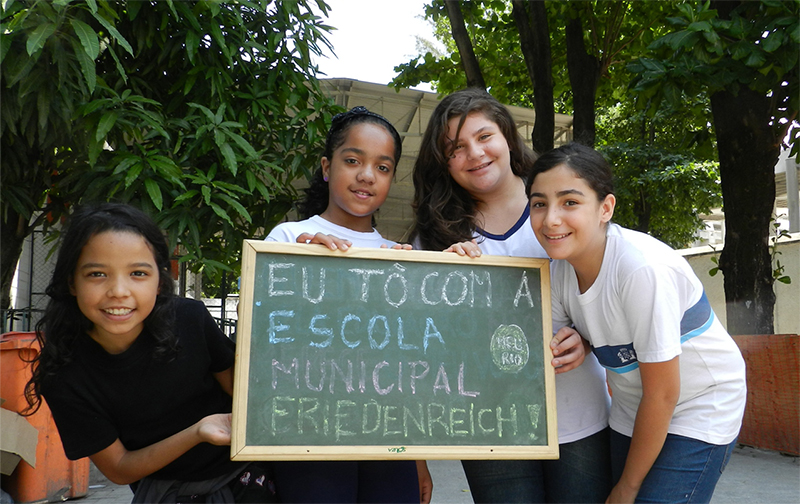 EU TÔ COM A
ESCOLA
MUNICIPAL
FRIEDENREICH!
MEU
RIO